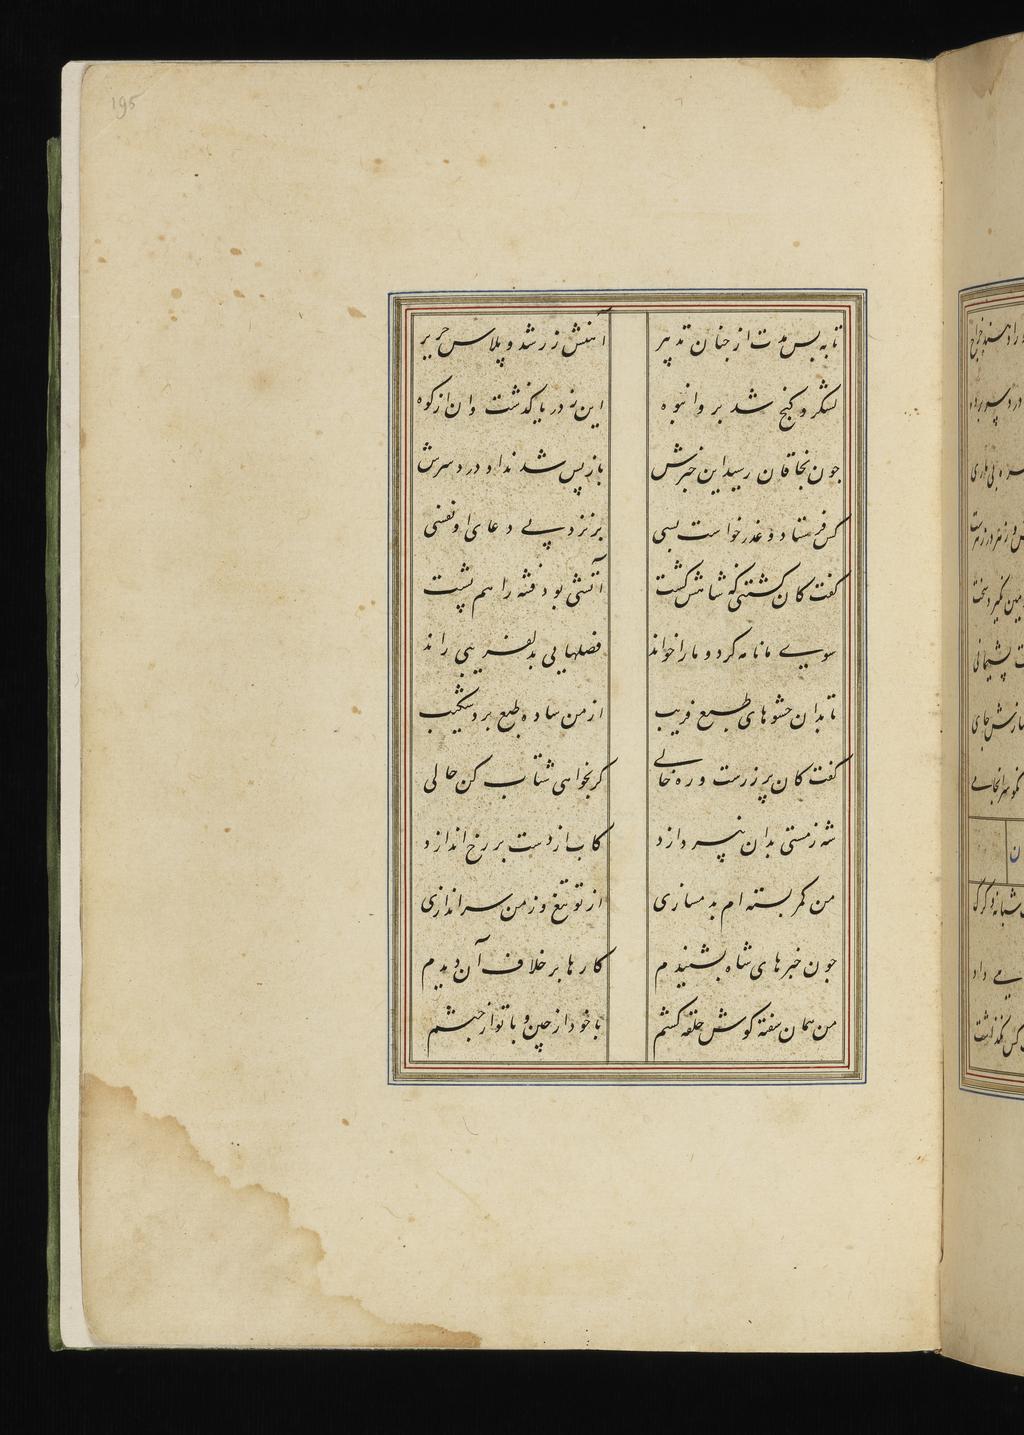 195
تا به بس مدت از جنان تدبیر
آهنش زر شد و پلاس حریر
لشکر و کنج شد برو انبوه
این ز دریا کذشت وان از کوه
جون بخاقان رسید این خبرش
باز پس شد نداد درد سرش
کس فرستاد و عذر خواست بسی
برنزد پی دعای او نفسی
کفت کان کشتنی که شاهش کشت
آتشی بود فتنه را هم پشت
سوی ما نامه کرد و ما را خواند
فصلهایی بدلفریبی راند
تا بدان عشوهای طبع فریب
از من ساده طبع برد شکیب
کفت کان پر زرست و ره خالی
کر بخواهی شتاب کن حالی
شه ز مستی بدان نپردازد
کاب از دست بر رخ اندازد
من کمر بسته ام بدمسازی
از تو تیغ و ز من سراندازی
جون خبرهای شاه بشنیدم
کارها بر خلاف آن دیدم
من همان سفته کوش حلقه کشم
با خود از چین و با تو از حبشم